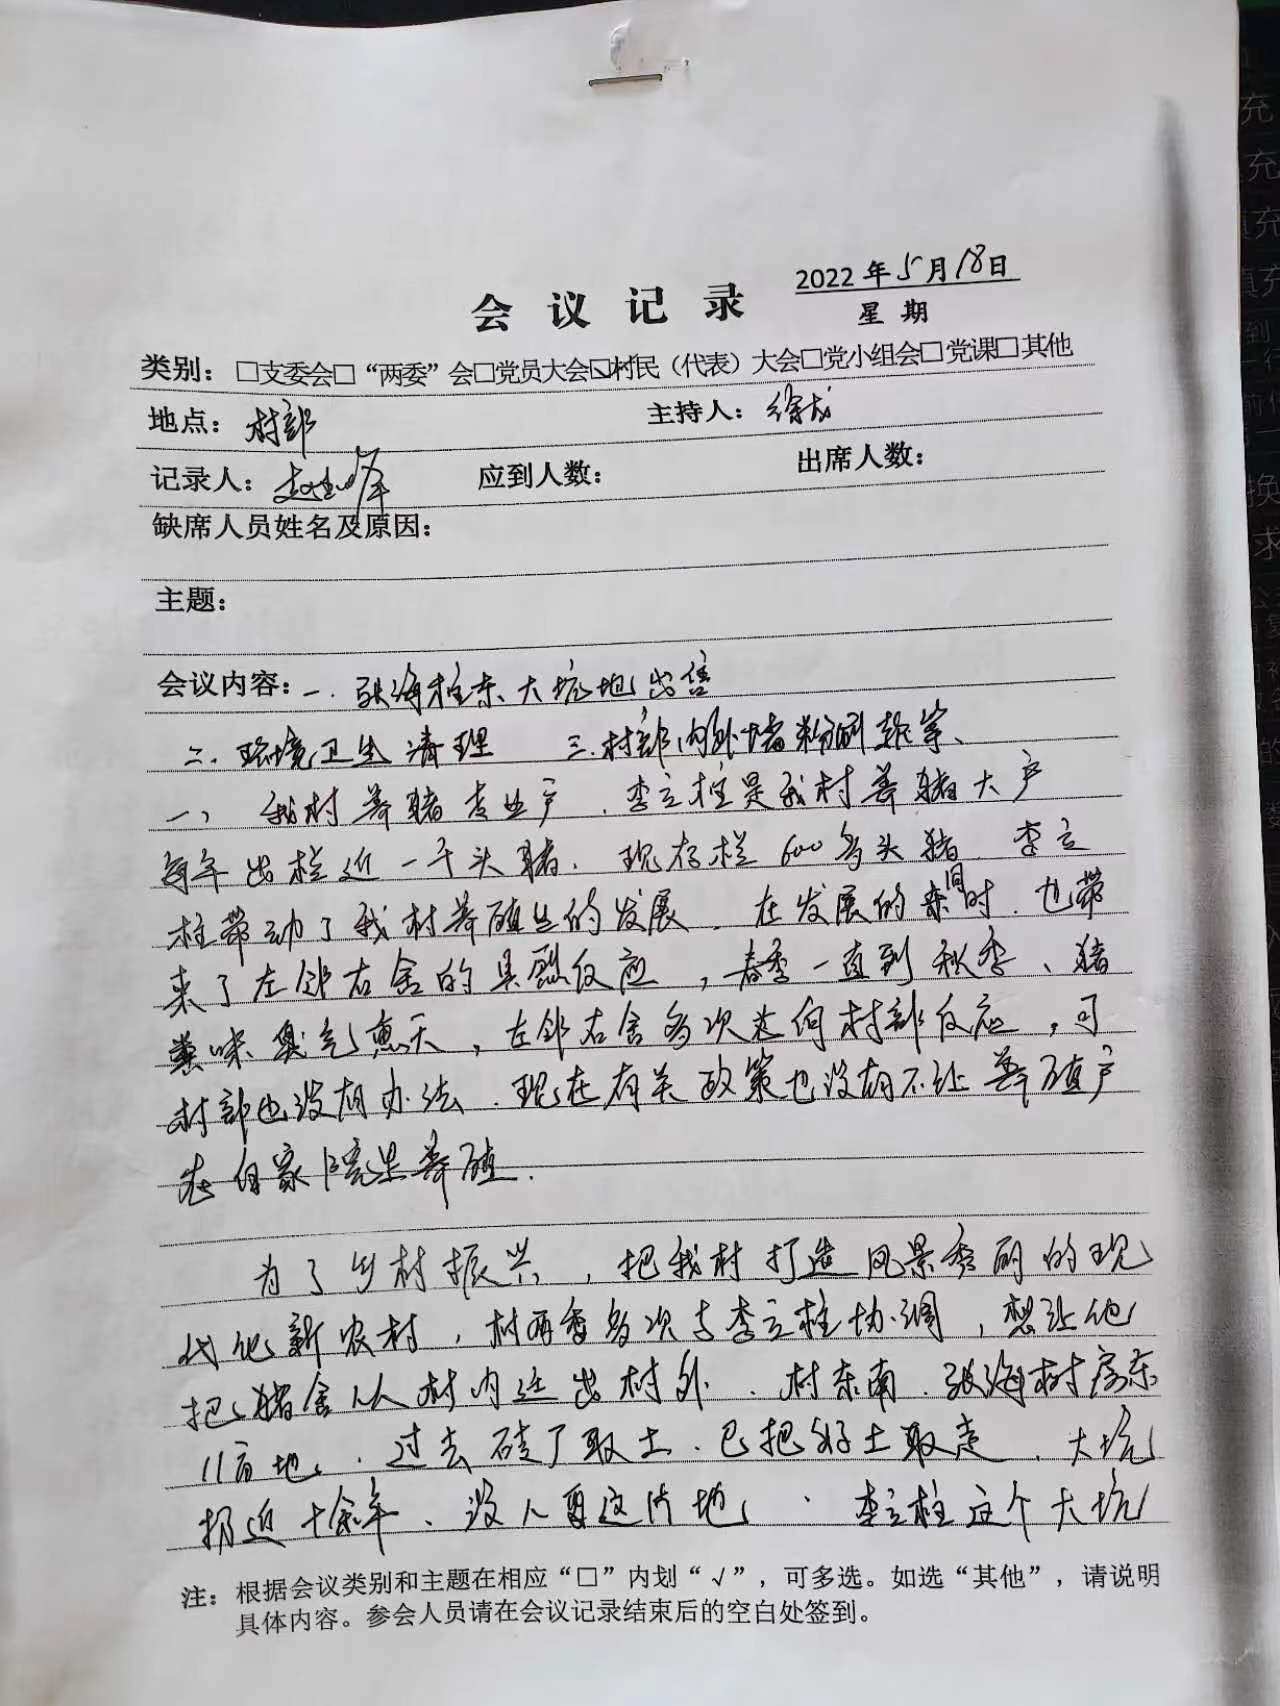 2022年5月18日
会议记录
星期
类别：□支委会□“两委”会□党员大会☑村民（代表）大会□党小组会□党课□其他
地点：村部 主持人：徐龙
记录人： 应到人数： 出席人数：
缺席人员姓名及原因：
主题：
会议内容：一、张海柱东大坑地出售
二、环境卫生清理 三、村部内外墙粉刷
一、我村养猪专业户、李立柱是我村养猪大户
每年出栏近一千头猪、现存栏600多头猪、李立
柱带动了我村养殖业的发展、在发展的来同时、也带
来了左邻右舍的具烈反应，春季一直到秋季、猪
粪味臭气熏天，左邻右舍多次向村部反应，可
村部也没有办法、现在有关政策也没有不让养殖户
在自家院里养殖.
为了乡村振兴，把我村打造风景秀丽的现
代化新农村，村两委多次与李立柱协调，想让他
把猪舍从村内迁出村外、村东南、张海树房东
11亩地、过去砖厂取土、已把好土取走、大坑
扔近十余年、没人要这片地、李立柱这个大坑
注：根据会议类别和主题在相应“□”内划“√”，可多选。如选“其他”，请说明
具体内容。参会人员请在会议记录结束后的空白处签到。